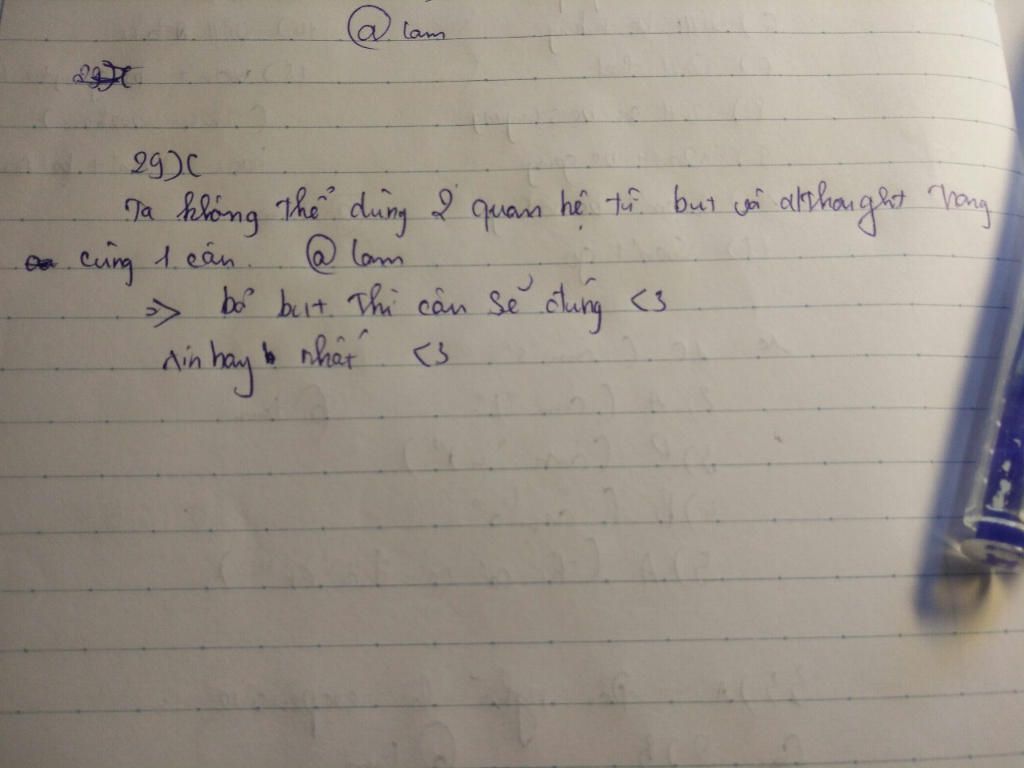 @ lam
29)C
29)C
Ta không thể dùng 2 quan hệ từ but và althought trong
cùng 1 câu. @ lam
=> bỏ but thì câu sẽ đúng <3
xin hay nhất <3